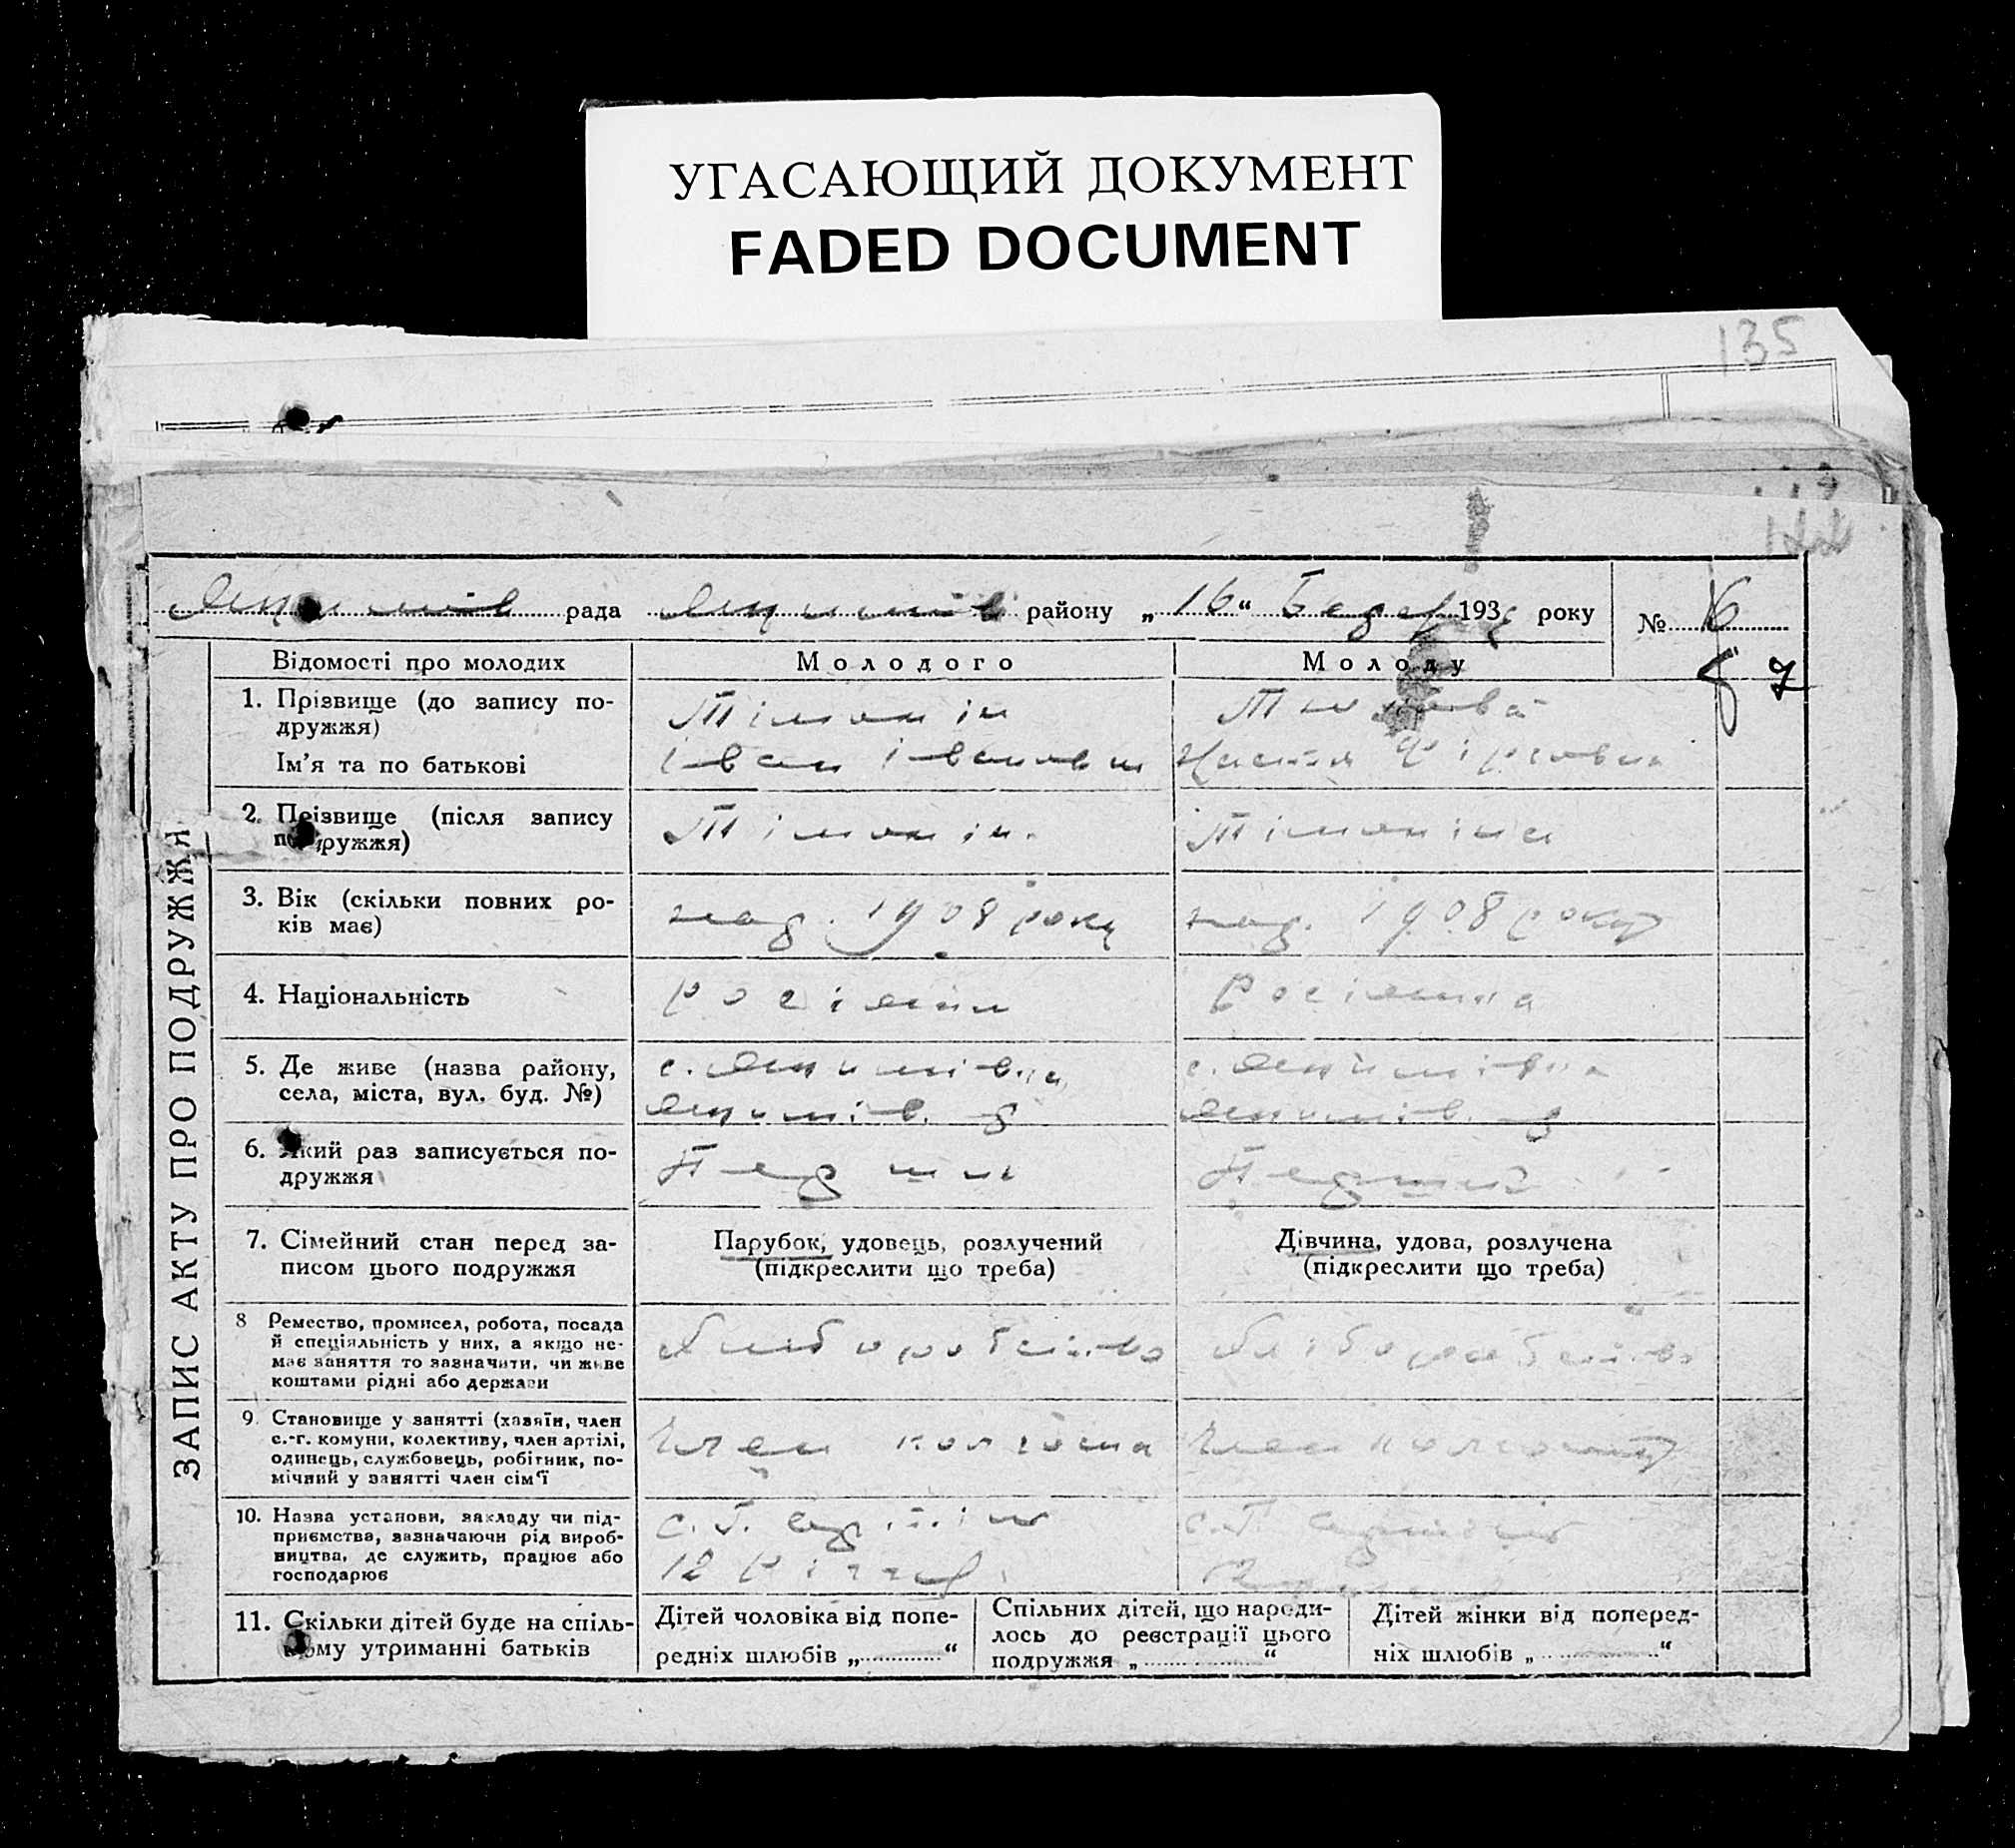 УГАСАЮЩИЙ ДОКУМЕНТ
FADED DOCUMENT
135
рада району „ 16 “ 193 року № 6
7
ЗАПИС АКТУ ПРО ПОДРУЖЖЯ
Відомості про молодих
Молодого
Молоду
1. Прізвище (до запису по-
дружжя)
Ім'я та по батькові
Тімонін
Іван Іванович
Настя
2. Прізвище (після запису
подружжя)
Тімонін
Тімоніна
3. Вік (скільки повних ро-
ків має)
над. 1908 року
над. 1908 року
4. Національність
росіянин
Росіянина
5. Де живе (назва району,
села, міста, вул. буд. №)
с. Якимівка
Якимів. р
с. Якимівка
Якимів. р
6. Який раз записується по-
дружжя
Перший
Перший
7. Сімейний стан перед за-
писом цього подружжя
Парубок, удовець, розлучений
(підкреслити що треба)
Дівчина, удова, розлучена
(підкреслити що треба)
8 Ремество, промисел, робота, посада
й спеціяльність у них, а якщо не-
має заняття то зазначити, чи живе
коштами рідні або держави
9. Становище у занятті (хазяїн, член
с.-г. комуни, колективу, член артілі,
одинець, службовець, робітник, по-
мічний у занятті член сім'ї
Член
Член
10. Назва установи, закладу чи під-
приємства, зазначаючи рід вироб-
ництва, де служить, працює або
господарює
с.г. артіль
12
с.г. артіль
12
11. Скільки дітей буде на спіль-
ному утриманні батьків
Дітей чоловіка від попе-
редніх шлюбів „ “
Спільних дітей, що народи-
лось до реєстрації цього
подружжя „ “
Дітей жінки від поперед-
ніх шлюбів „ “